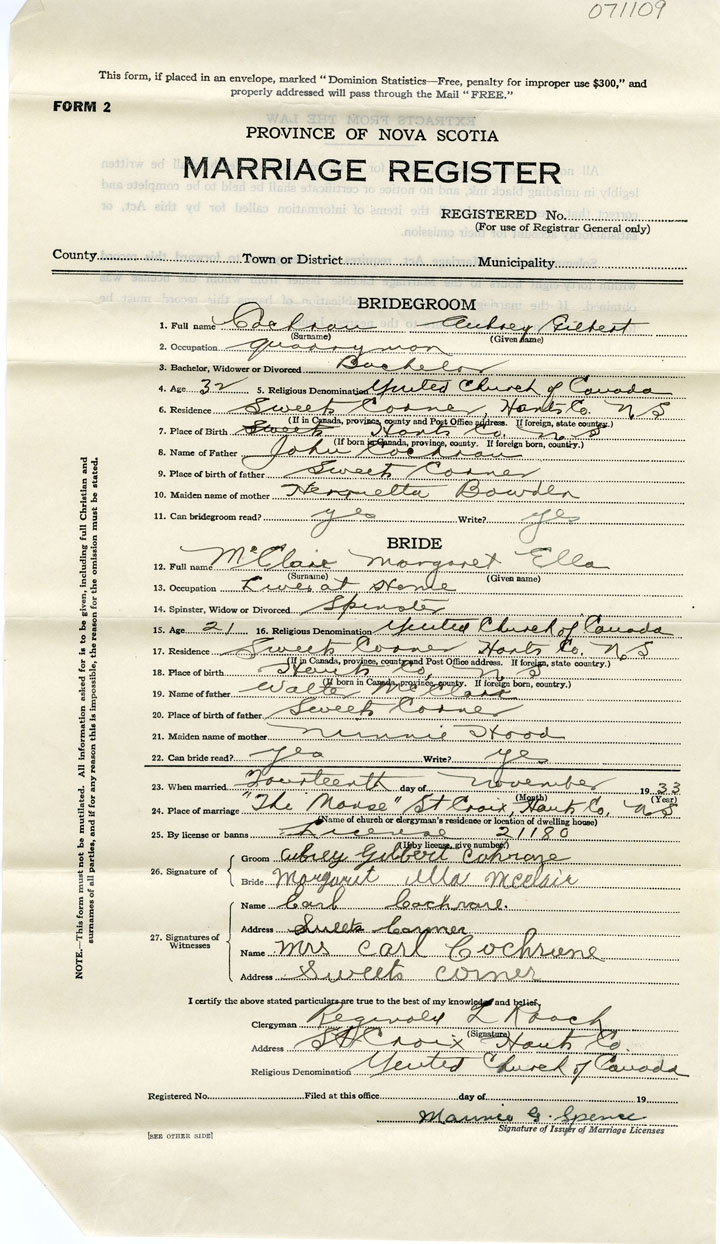 071109
This form, if placed in an envelope, marked "Dominion Statistics—Free, penalty for improper use $300," and
properly addressed will pass through the Mail "FREE."
FORM 2
PROVINCE OF NOVA SCOTIA
MARRIAGE REGISTER
REGISTERED No.
(For use of Registrar General only)
County Town or District Municipality
BRIDEGROOM
1. Full name Cochran Aubrey Gilbert
(Surname) (Given name)
2. Occupation quarryman
3. Bachelor, Widower or Divorced Bachelor
4. Age 32 5. Religious Denomination United Church of Canada
6. Residence Sweets Corner, Hants Co. N S
(If in Canada, province, county and Post Office address. If foreign, state country.)
7. Place of Birth Sweets Hants Co. N. S
(If born in Canada, province, county. If foreign born, country.)
8. Name of Father John Cochran
9. Place of birth of father Sweets Corner
10. Maiden name of mother Henrietta Bowden
11. Can bridegroom read? yes Write? yes
BRIDE
12. Full name McClair Margaret Ella
(Surname) (Given name)
13. Occupation Lives at Home
14. Spinster, Widow or Divorced Spinster
15. Age 21 16. Religious Denomination United Church of Canada
17. Residence Sweets Corner Hants Co. N, S
(If in Canada, province, county and Post Office address. If foreign, state country.)
18. Place of birth Hants Co, N. S
(If born in Canada, province, county. If foreign born, country.)
19. Name of father Walter McClair
20. Place of birth of father Sweets Corner
21. Maiden name of mother Minnie Hood
22. Can bride read? yes Write? yes
23. When married Fourteenth day of November 1933
(Month) (Year)
24. Place of marriage "The Manse" St Croix, Hants Co, N S
(Name of church or clergyman's residence or location of dwelling house)
25. By license or banns License 21180
(If by license, give number.)
26. Signature of
Groom Aubrey Gilbert Cohrane
Bride Margaret Ella McClair
27. Signatures of Witnesses
Name Carl Cochrane.
Address Sweets Corner
Name Mrs Carl Cochrane
Address Sweets corner
I certify the above stated particulars are true to the best of my knowledge and belief.
Clergyman Reginald L Roach
(Signature)
Address St Croix Hants Co.
Religious Denomination United Church of Canada
Registered No. Filed at this office day of 19
Maurice G. Spence
Signature of Issuer of Marriage Licenses
[SEE OTHER SIDE]
NOTE.—This form must not be mutilated. All information asked for is to be given, including full Christian and
surnames of all parties, and if for any reason this is impossible, the reason for the omission must be stated.